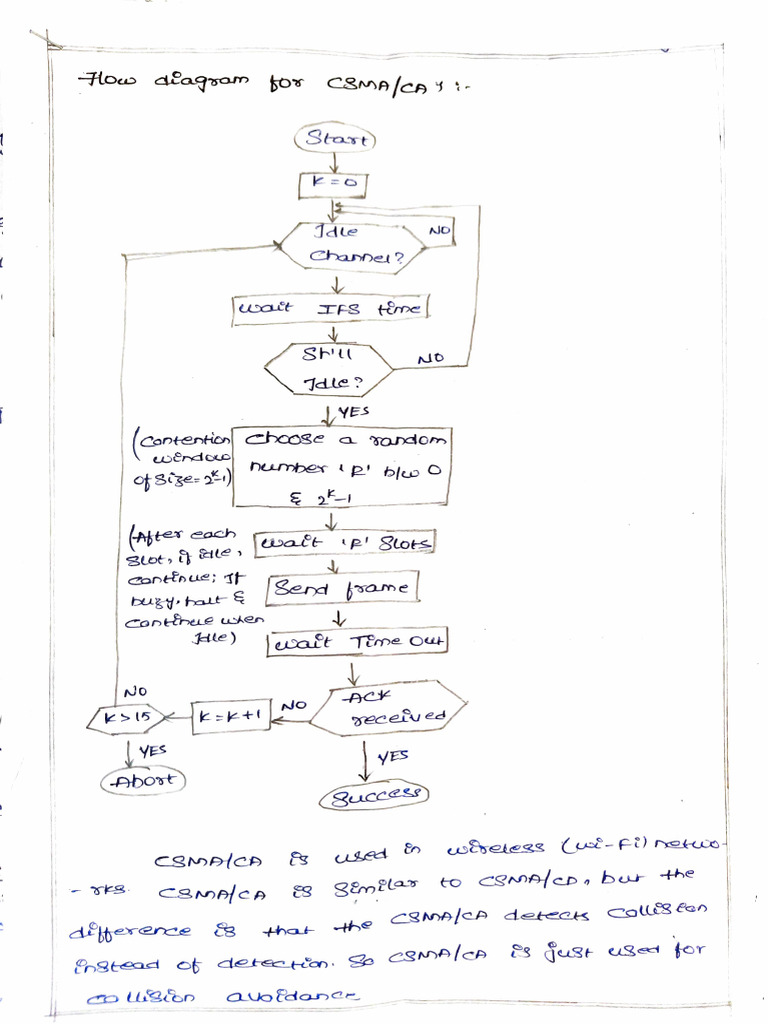 Flow diagram for CSMA/CA's :-
Start
K=0
Idle
Channel?
NO
wait IFS time
Still
Idle?
NO
YES
(Contention
window
of size=2^k-1)
choose a random
number 'R' b/w 0
& 2^k-1
(After each
slot, if idle,
continue; If
buzy, halt &
continue when
Idle)
wait 'R' Slots
Send frame
wait Time Out
ACK
received
NO
K=K+1
K>15
NO
YES
Abort
YES
Success
CSMA/CA is used in wireless (wi-Fi) netwo-
-rks. CSMA/CA is similar to CSMA/CD, but the
difference is that the CSMA/CA detects collision
instead of detection. So CSMA/CA is just used for
collision avoidance